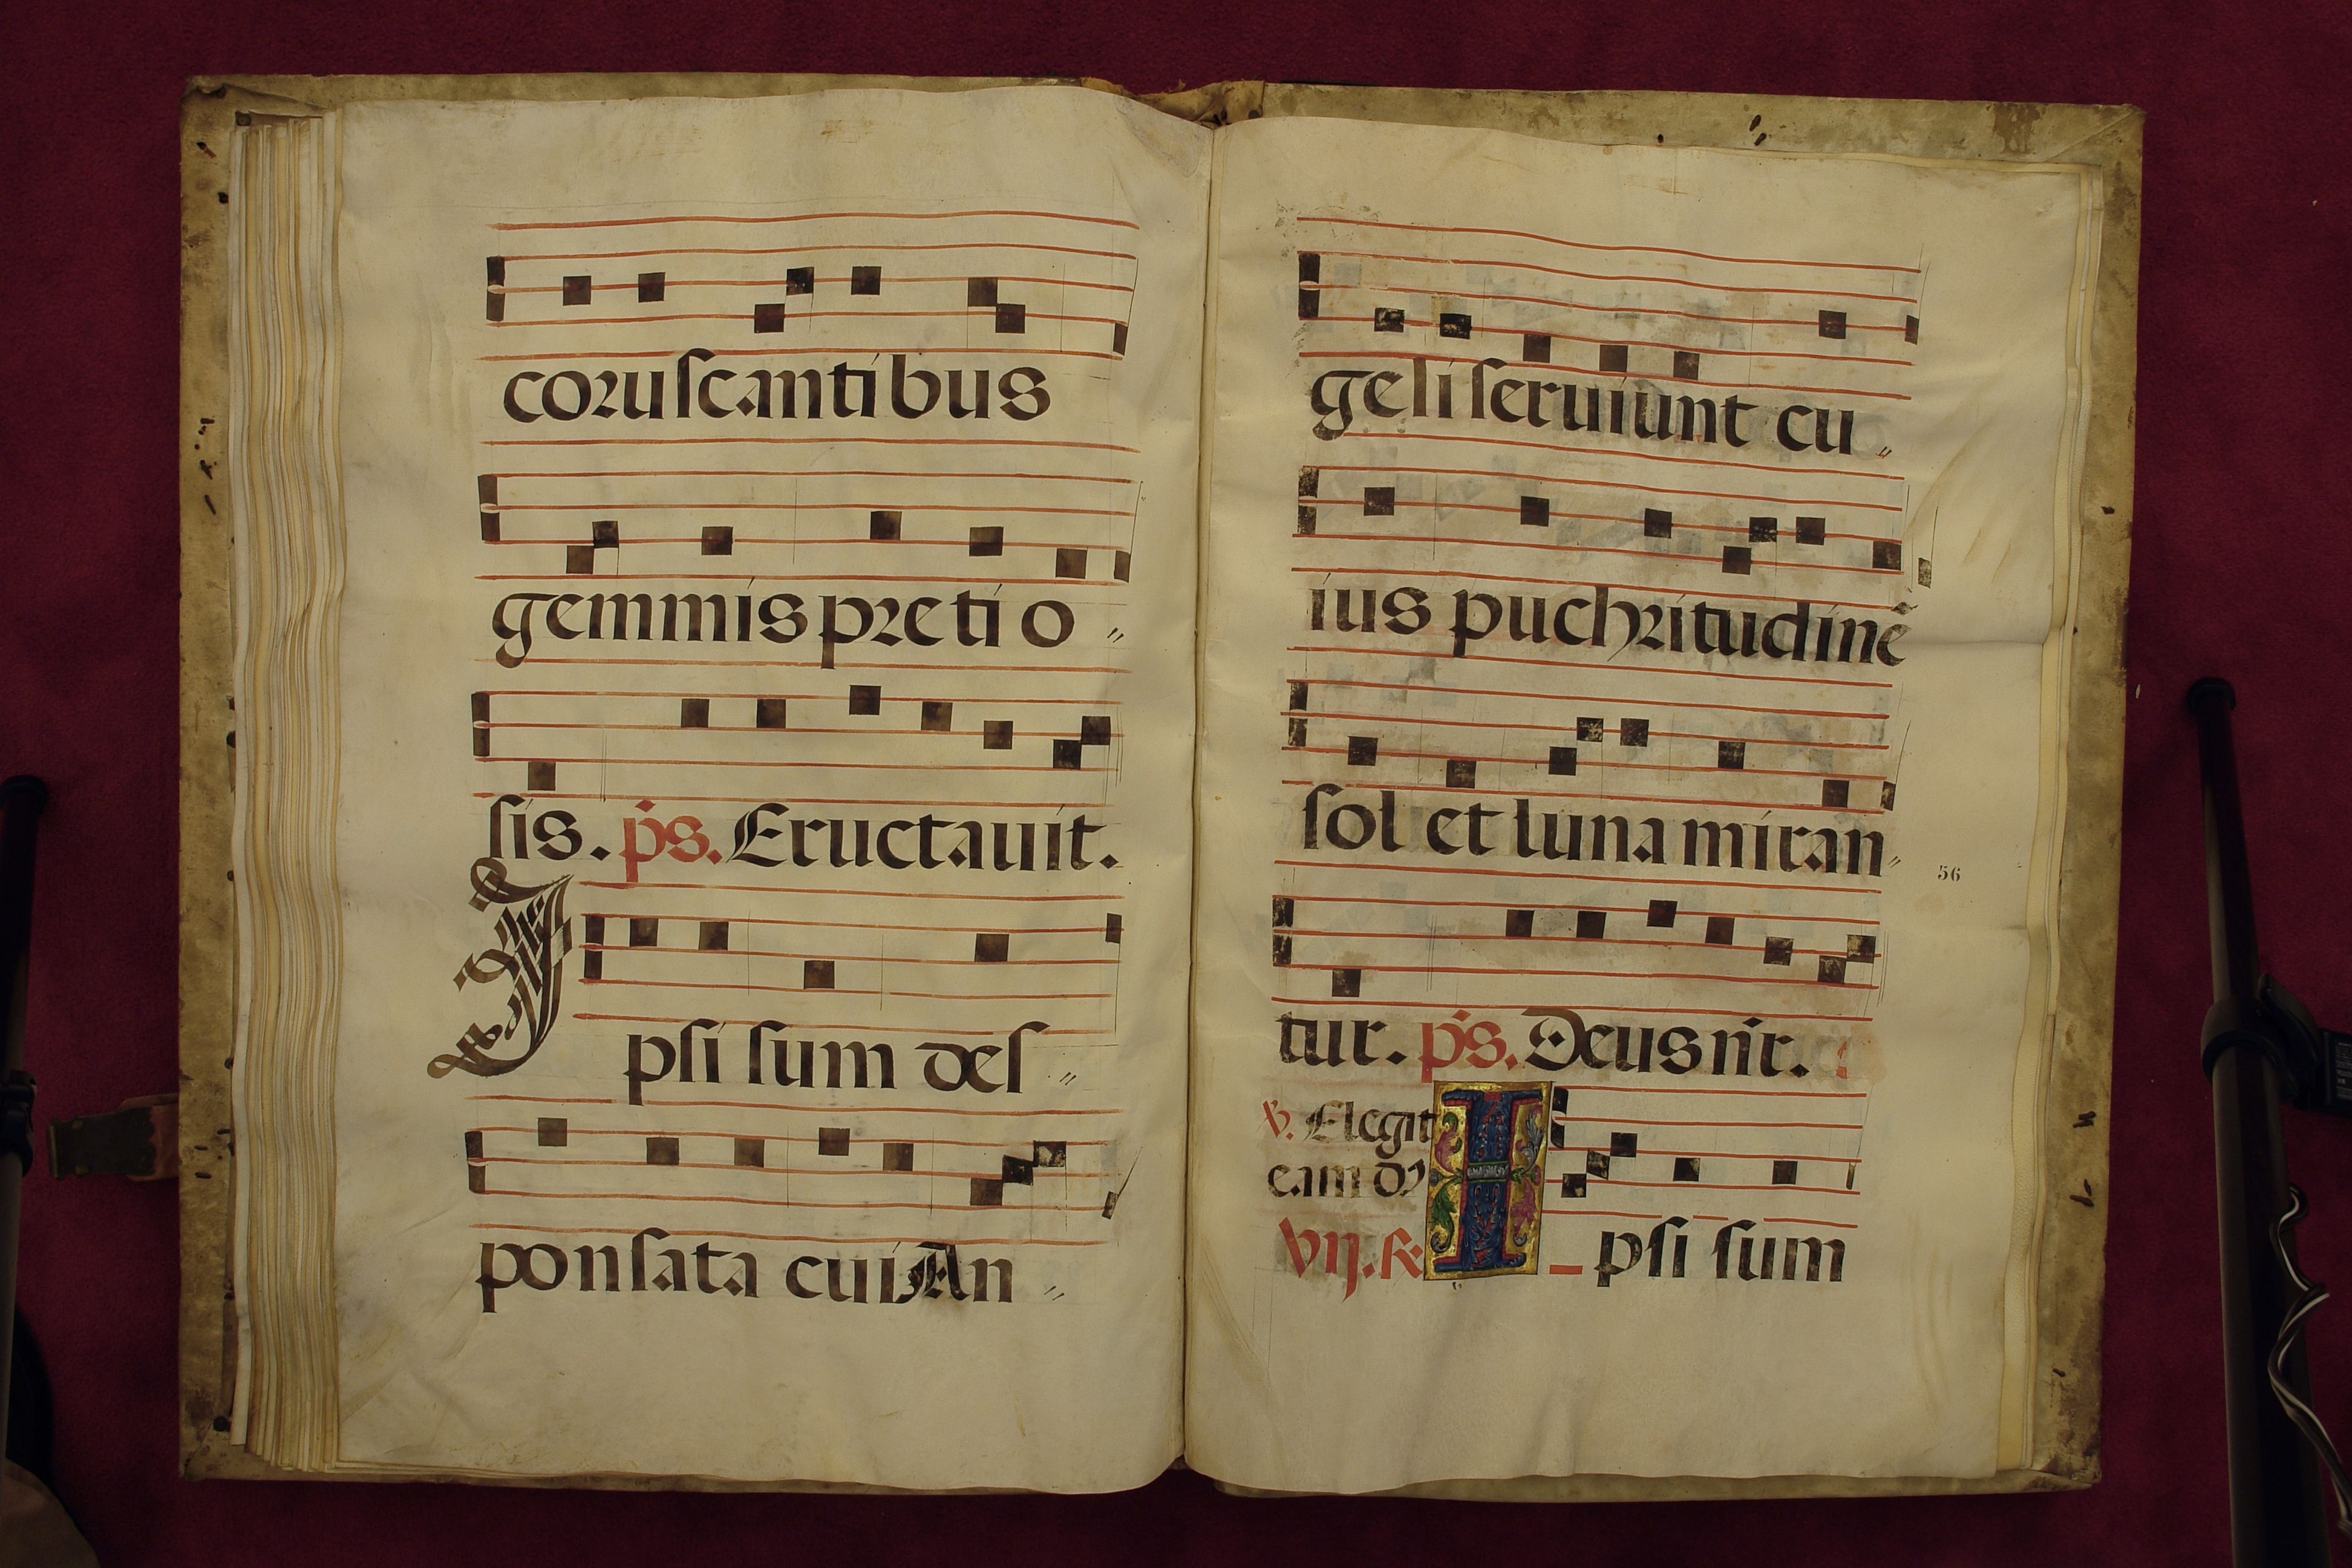 coruscantibus
gemmis pretio〃
sis. ps. Eructauit.
Ipsi sum des〃
ponsata cui An〃
geli seruiunt cu〃
ius puchritudinē
sol et luna miran〃
tur. ps. Deus nr̄.
℣. Elegit
eam dn̄s
VIJ. ℟. I psi sum
56